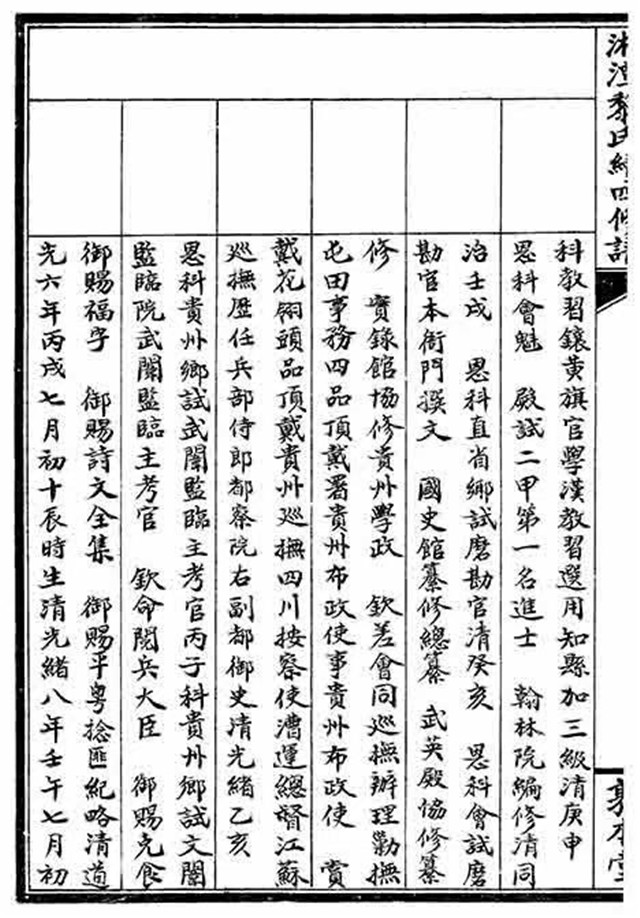 湘潭黎氏續四修譜
科教習鑲黃旗官學漢教習選用知縣加三級清庚申
恩科會魁　殿試二甲第一名進士　翰林院編修清同
治壬戌　恩科直省鄉試磨勘官清癸亥　恩科會試磨
勘官本衙門撰文　國史館纂修總纂　武英殿協修纂
修　實錄館協修貴州學政　欽差會同巡撫辦理勦撫
屯田事務四品頂戴署貴州布政使事貴州布政使　賞
戴花翎頭品頂戴貴州巡撫四川按察使漕運總督江蘇
巡撫歷任兵部侍郎都察院右副都御史清光緒乙亥
恩科貴州鄉試武闈監臨主考官丙子科貴州鄉試文闈
監臨院武闈監臨主考官　欽命閱兵大臣　御賜克食
御賜福字　御賜詩文全集　御賜平粵捻匪紀略清道
光六年丙戌七月初十辰時生清光緒八年壬午七月初
敦本堂